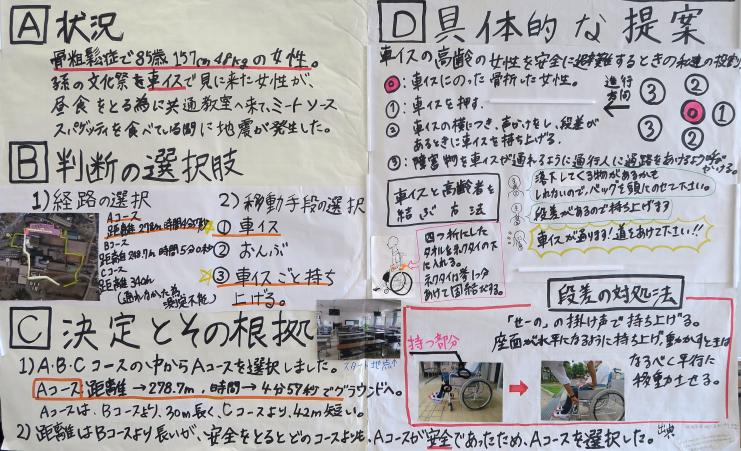 A 状況
骨粗鬆症で85歳 157cm 48kgの女性。
孫の文化祭を車イスで見に来た女性が、
昼食をとる為に共通教室へ来て、ミートソース
スパゲッティを食べている間に地震が発生した。
B 判断の選択肢
1) 経路の選択
Aコース
距離 278.7m 時間4分57秒
Bコース
距離 248.7m 時間5分0秒
Cコース
距離 340m
(通れなかった為、
測定不能)
2) 移動手段の選択
① 車イス
② おんぶ
③ 車イスごと持ち
上げる。
C 決定とその根拠
スタート地点
1) A・B・Cコースの中からAコースを選択しました。
Aコース:距離→278.7m,時間→4分57秒でグラウンドへ。
Aコースは、Bコースより、30m長く、Cコースより、42m短い。
2) 距離はBコースより長いが、安全をとるとどのコースよりも、Aコースが安全であったため、Aコースを選択した。
D 具体的な提案
車イスの高齢の女性を安全に避難するときの私達の役割
◎:車イスにのった骨折した女性。
①:車イスを押す。
②:車イスの横につき、声かけをし、段差が
あるときに車イスを持ち上げる。
③:障害物を車イスが通れるように通行人に通路をあけるよう呼びかける。
進行
方向
③ ② ◎ ① ③ ②
車イスと高齢者を
結ぶ方法
四つ折にした
タオルをネクタイの下
に入れる。
ネクタイは拳1つ分
あけて固結びする。
落下してくる物があるかも
しれないので、バッグを頭にのせて下さい。
段差があるので持ち上げます
車イスが通ります!道をあけて下さい!!
段差の対処法
「せーの」の掛け声で持ち上げる。
座面が水平になるように持ち上げ、動かすときは
なるべく平行に
移動させる。
持つ部分
出典